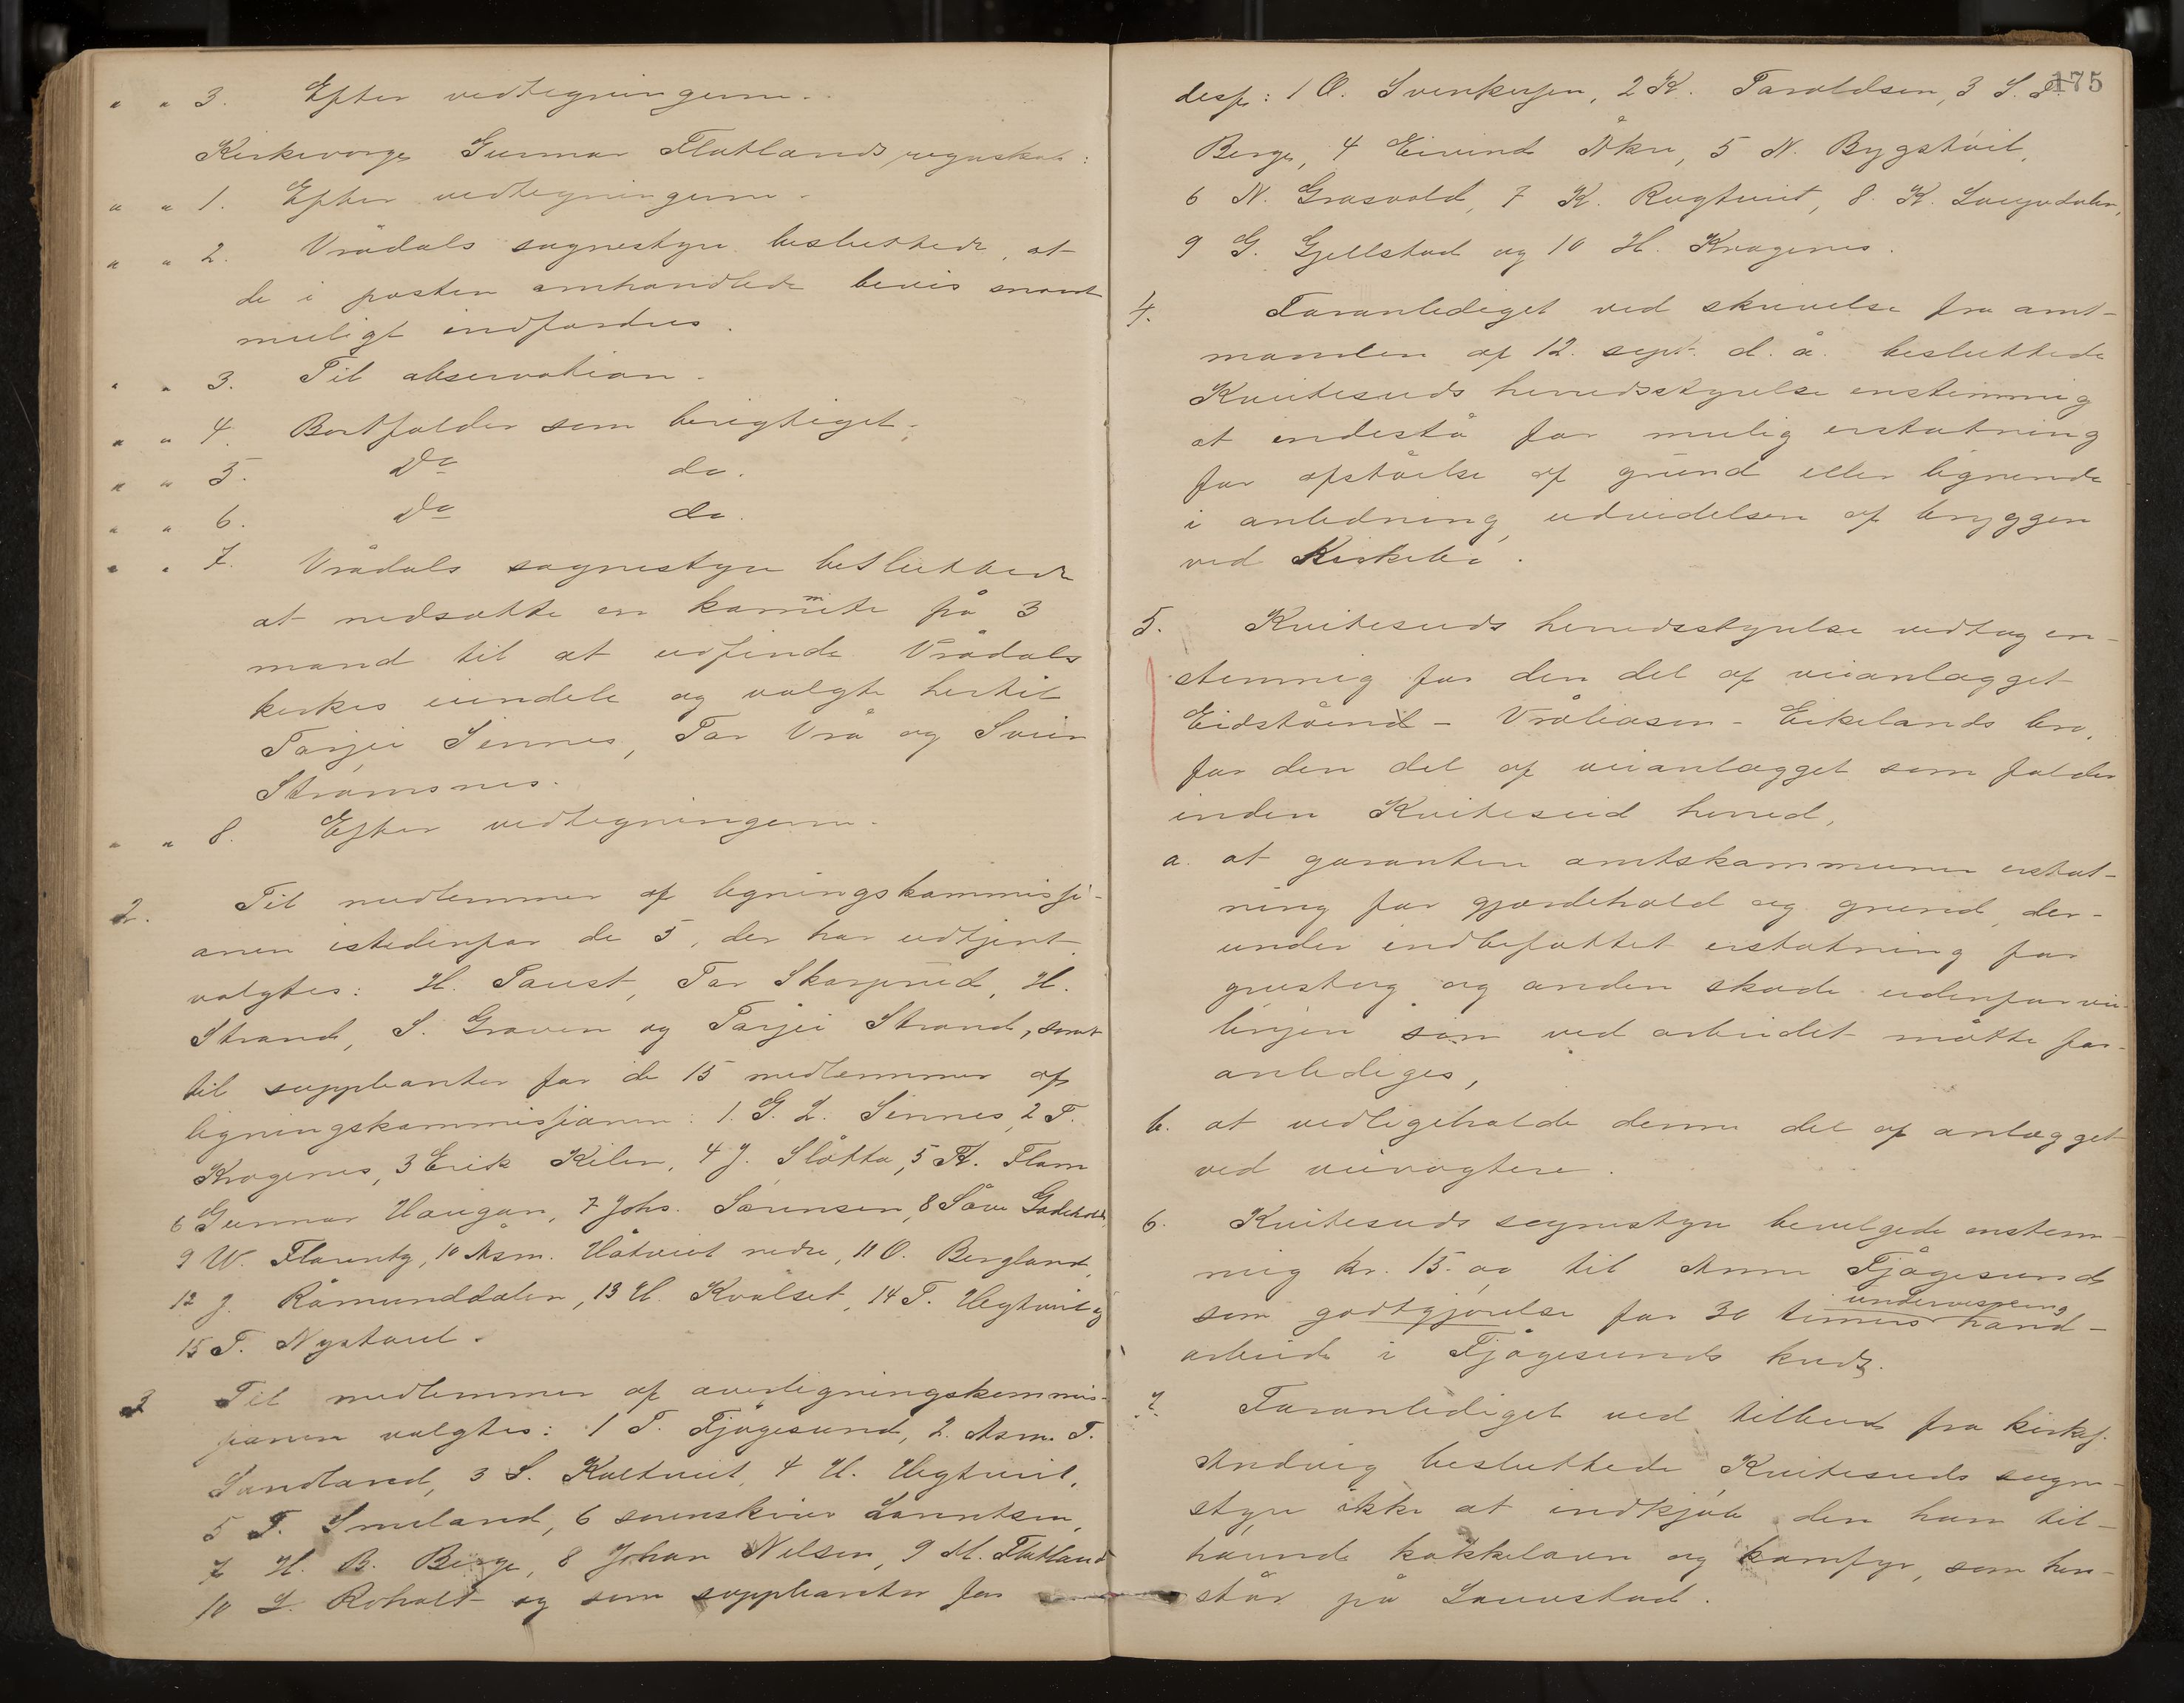 " " 3. Efter vedtegningerne.
Kirkeverge Gunnar Flatlands regnskab:
" " 1. Efter vedtegningerne.
" " 2. Vrådals sognestyre besluttede, at
de i posten omhandlede bevis snarest
muligt indfordres.
" " 3. Til observation.
" " 4. Bortfalder som berigtiget.
" " 5. Do do.
" " 6. Do do.
" " 7. Vrådals sognestyre besluttede
at nedsætte en komite på 3
mand til at udfinde Vrådals
kirkes eiendele og valgte hertil
Tarjei Sinnes, Tor Vrå og Svein
Strømsnes.
" " 8. Efter vedtegningerne.
2. Til medlemmer af ligningskommissi-
onen istedenfor de 5, der har udtjent
valgtes: H. Faust, Tor Skarprud, H.
Strand, S. Graven og Tarjei Strand, samt
til suppleanter for de 15 medlemmer af
ligningskommissionen: 1. G. L. Sinnes, 2 T.
Kragenes, 3 Erik Kilen, 4 J. Slåtta, 5 H. Flom
6 Gunnar Haugan, 7 Johs. Sørensen, 8 Såve
9 W. Florentz, 10 Asm. Håtveit nedre, 11 O. Bergland,
12 J. Råmunddalen, 13 H. Kvålset, 14 T. Hegtveit og
15 T. Nystaul.
3 Til medlemmer af overligningskommis-
sionen valgtes: 1 T. Fjågesund, 2. Asm. T.
Sundland, 3 S. Kultveit, 4 H. Hegtveit,
5 T. Smeland, 6 sorenskriver Lorentsen,
7 H. B. Berge, 8 Johan Nilsen, 9 M. Flatland
10 L. Roholt og som suppleanter for
175
desse: 1 O. Svenkesen, 2 K. Taraldsen, 3 S. T.
Berge, 4 Eivind Åkre, 5 N. Bygstøil,
6 N. Grasvold, 7 K. Rugtveit, 8 K. Langedalen,
9 G. Gjellstad og 10 H. Kragenes.
4. Foranlediget ved skrivelse fra amt-
manden af 12. sept. d. å. besluttede
Kviteseids herredsstyrelse enstemmig
at indestå for mulig erstatning
for afståelse af grund eller lignende
i anledning udvidelsen af bryggen
ved Kirkebø.
5. Kviteseids herredsstyrelse vedtog en-
stemmig for den del af veianlægget
Eidståend - Vråliosen - Eikelands bro,
for den del af veianlægget som falder
inden Kviteseid herred,
a. at garantere amtskommunen erstat-
ning for gjærdehold og grund, der-
under indbefattet erstatning for
grustag og anden skade udenfor vei-
linjen som ved arbeidet måtte for-
anlediges,
b. at vedligeholde denne del af anlægget
ved veivogtere.
6. Kviteseids sognestyre bevilgede enstem-
mig kr. 15.00 til Anne Fjågesund
som godtgjørelse for 30 timers undervisning hånd-
arbeide i Fjågesunds kreds.
7. Foranlediget ved tilbud fra kirkes.
Andvig besluttede Kviteseids sogne-
styre ikke at indkjøbe den ham til-
hørende kakkelovn og komfyr, som hen-
står på Laurstad.